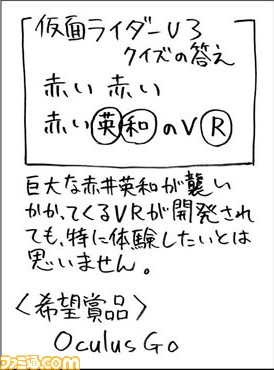 仮面ライダーV3
クイズの答え
赤い 赤い
赤い英和のVR
巨大な赤井英和が襲い
かかってくるVRが開発され
ても、特に体験したいとは
思いません。
〈希望賞品〉
Oculus Go
ファミ通.com